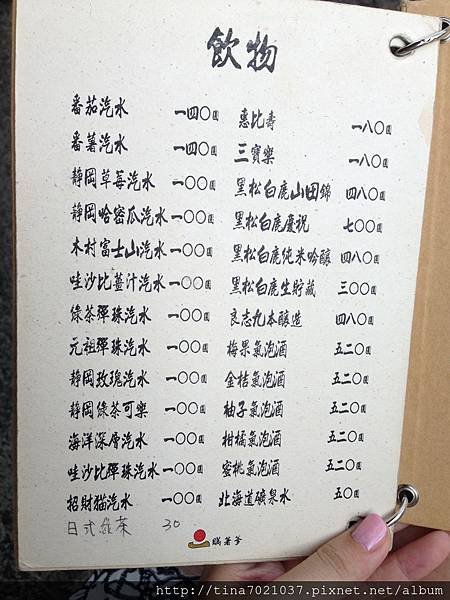 飲物
番茄汽水 一四〇圓
番薯汽水 一四〇圓
靜岡草莓汽水 一〇〇圓
靜岡哈密瓜汽水 一〇〇圓
木村富士山汽水 一〇〇圓
哇沙比薑汁汽水 一〇〇圓
綠茶彈珠汽水 一〇〇圓
元祖彈珠汽水 一〇〇圓
靜岡玫瑰汽水 一〇〇圓
靜岡綠茶可樂 一〇〇圓
海洋深層汽水 一〇〇圓
哇沙比彈珠汽水 一〇〇圓
招財貓汽水 一〇〇圓
日式綠茶 30
惠比壽 一八〇圓
三寶樂 一八〇圓
黑松白鹿山田錦 四八〇圓
黑松白鹿慶祝 七〇〇圓
黑松白鹿純米吟釀 四八〇圓
黑松白鹿生貯藏 三〇〇圓
良志久本釀造 四八〇圓
梅果氣泡酒 五二〇圓
金桔氣泡酒 五二〇圓
柚子氣泡酒 五二〇圓
柑橘氣泡酒 五二〇圓
蜜桃氣泡酒 五二〇圓
北海道礦泉水 五〇圓
http://tina7021037.pixnet.net/album